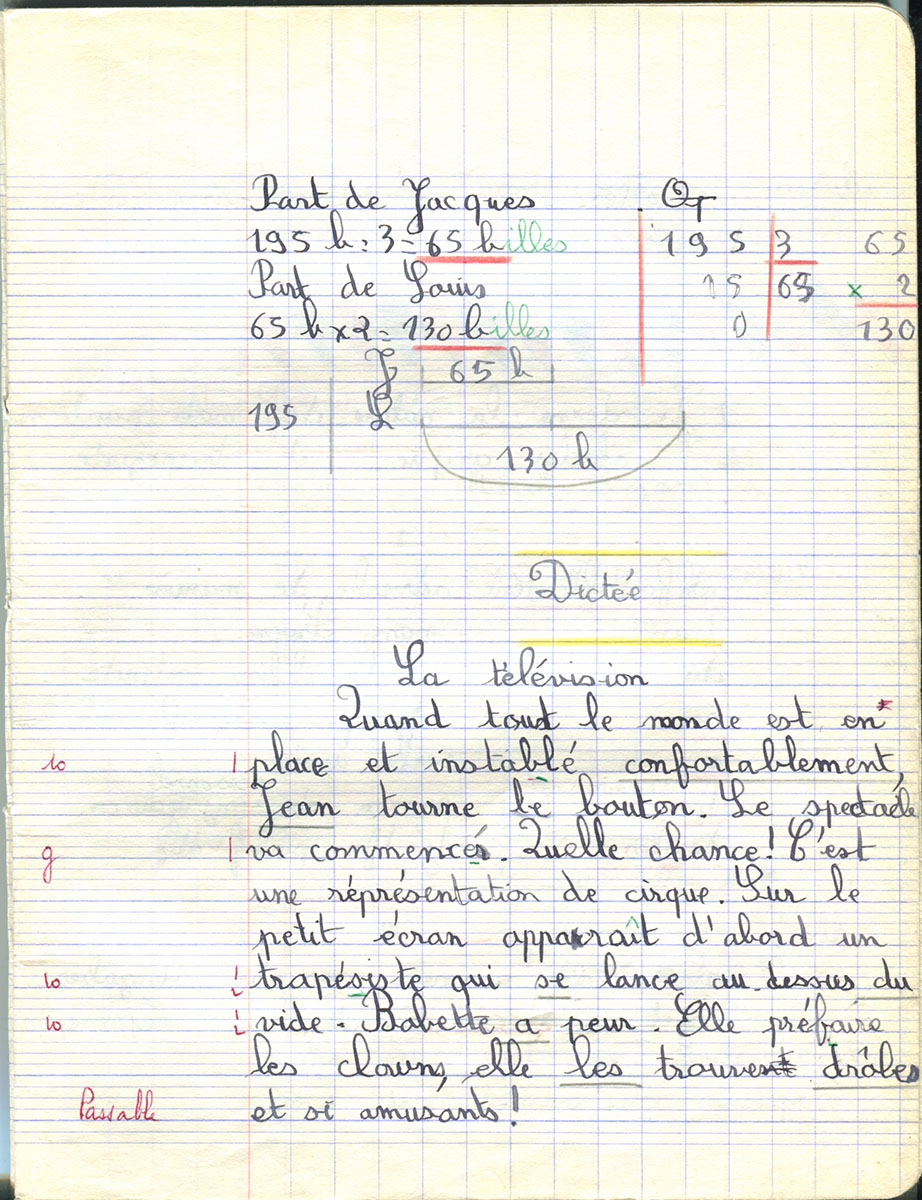 Part de Jacques Op
195 b : 3 = 65 billes 195 3 65
Part de Louis 15 65 x 2
65 b x 2 = 130 billes 0 130
J 65 b
195 L
130 b
Dictée
La télévision
Quand tout le monde est en
10 place et instablé confortablement,
Jean tourne le bouton. Le spectacle
g va commencér. Quelle chance ! C'est
une réprésentation de cirque. Sur le
petit écran apparaît d'abord un
10 trapésiste qui se lance au-dessus du
10 vide. Babette a peur. Elle préfaire
les clowns, elle les trouve drôles
Passable et si amusants !